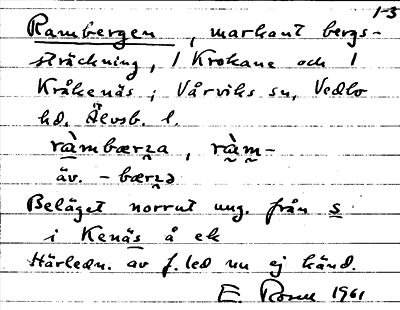 1-3
Rambergen, markant bergs-
sträckning, / Krokane och /
Kråkenäs; Vårviks sn, Vedbo
hd. Älvsb. l.
ràmbærza, ràm-
äv. -bærzə
Beläget norrut ung. från s
i Kenäs å ek
Härledn. av f. led nu ej känd.
E. 1961